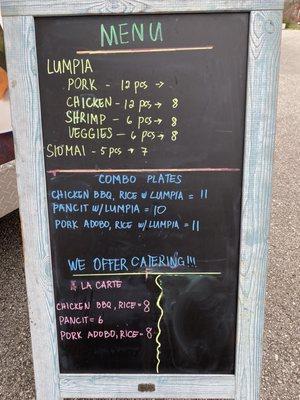 MENU
LUMPIA
PORK - 12 pcs →
CHICKEN - 12 pcs → 8
SHRIMP - 6 pcs → 8
VEGGIES - 6 pcs → 8
SIOMAI - 5 pcs → 7
COMBO PLATES
CHICKEN BBQ, RICE W LUMPIA = 11
PANCIT W/LUMPIA = 10
PORK ADOBO, RICE W/LUMPIA = 11
WE OFFER CATERING!!!
A LA CARTE
CHICKEN BBQ, RICE = 8
PANCIT = 6
PORK ADOBO, RICE = 8